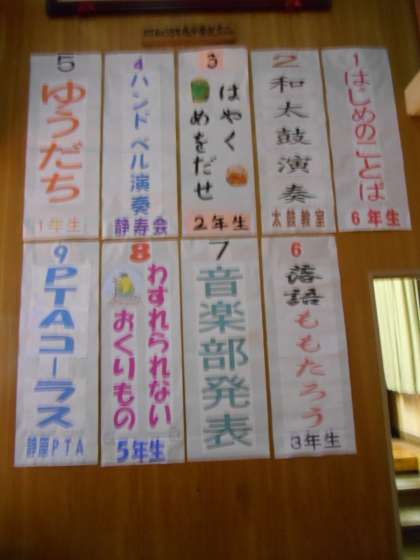 1
はじめのことば
6年生
2
和太鼓演奏
太鼓教室
3
はやく
めをだせ
2年生
4
ハンドベル演奏
静寿会
5
ゆうだち
1年生
6
落語
ももたろう
3年生
7
音楽部発表
8
わすれられない
おくりもの
5年生
9
PTAコーラス
静原PTA